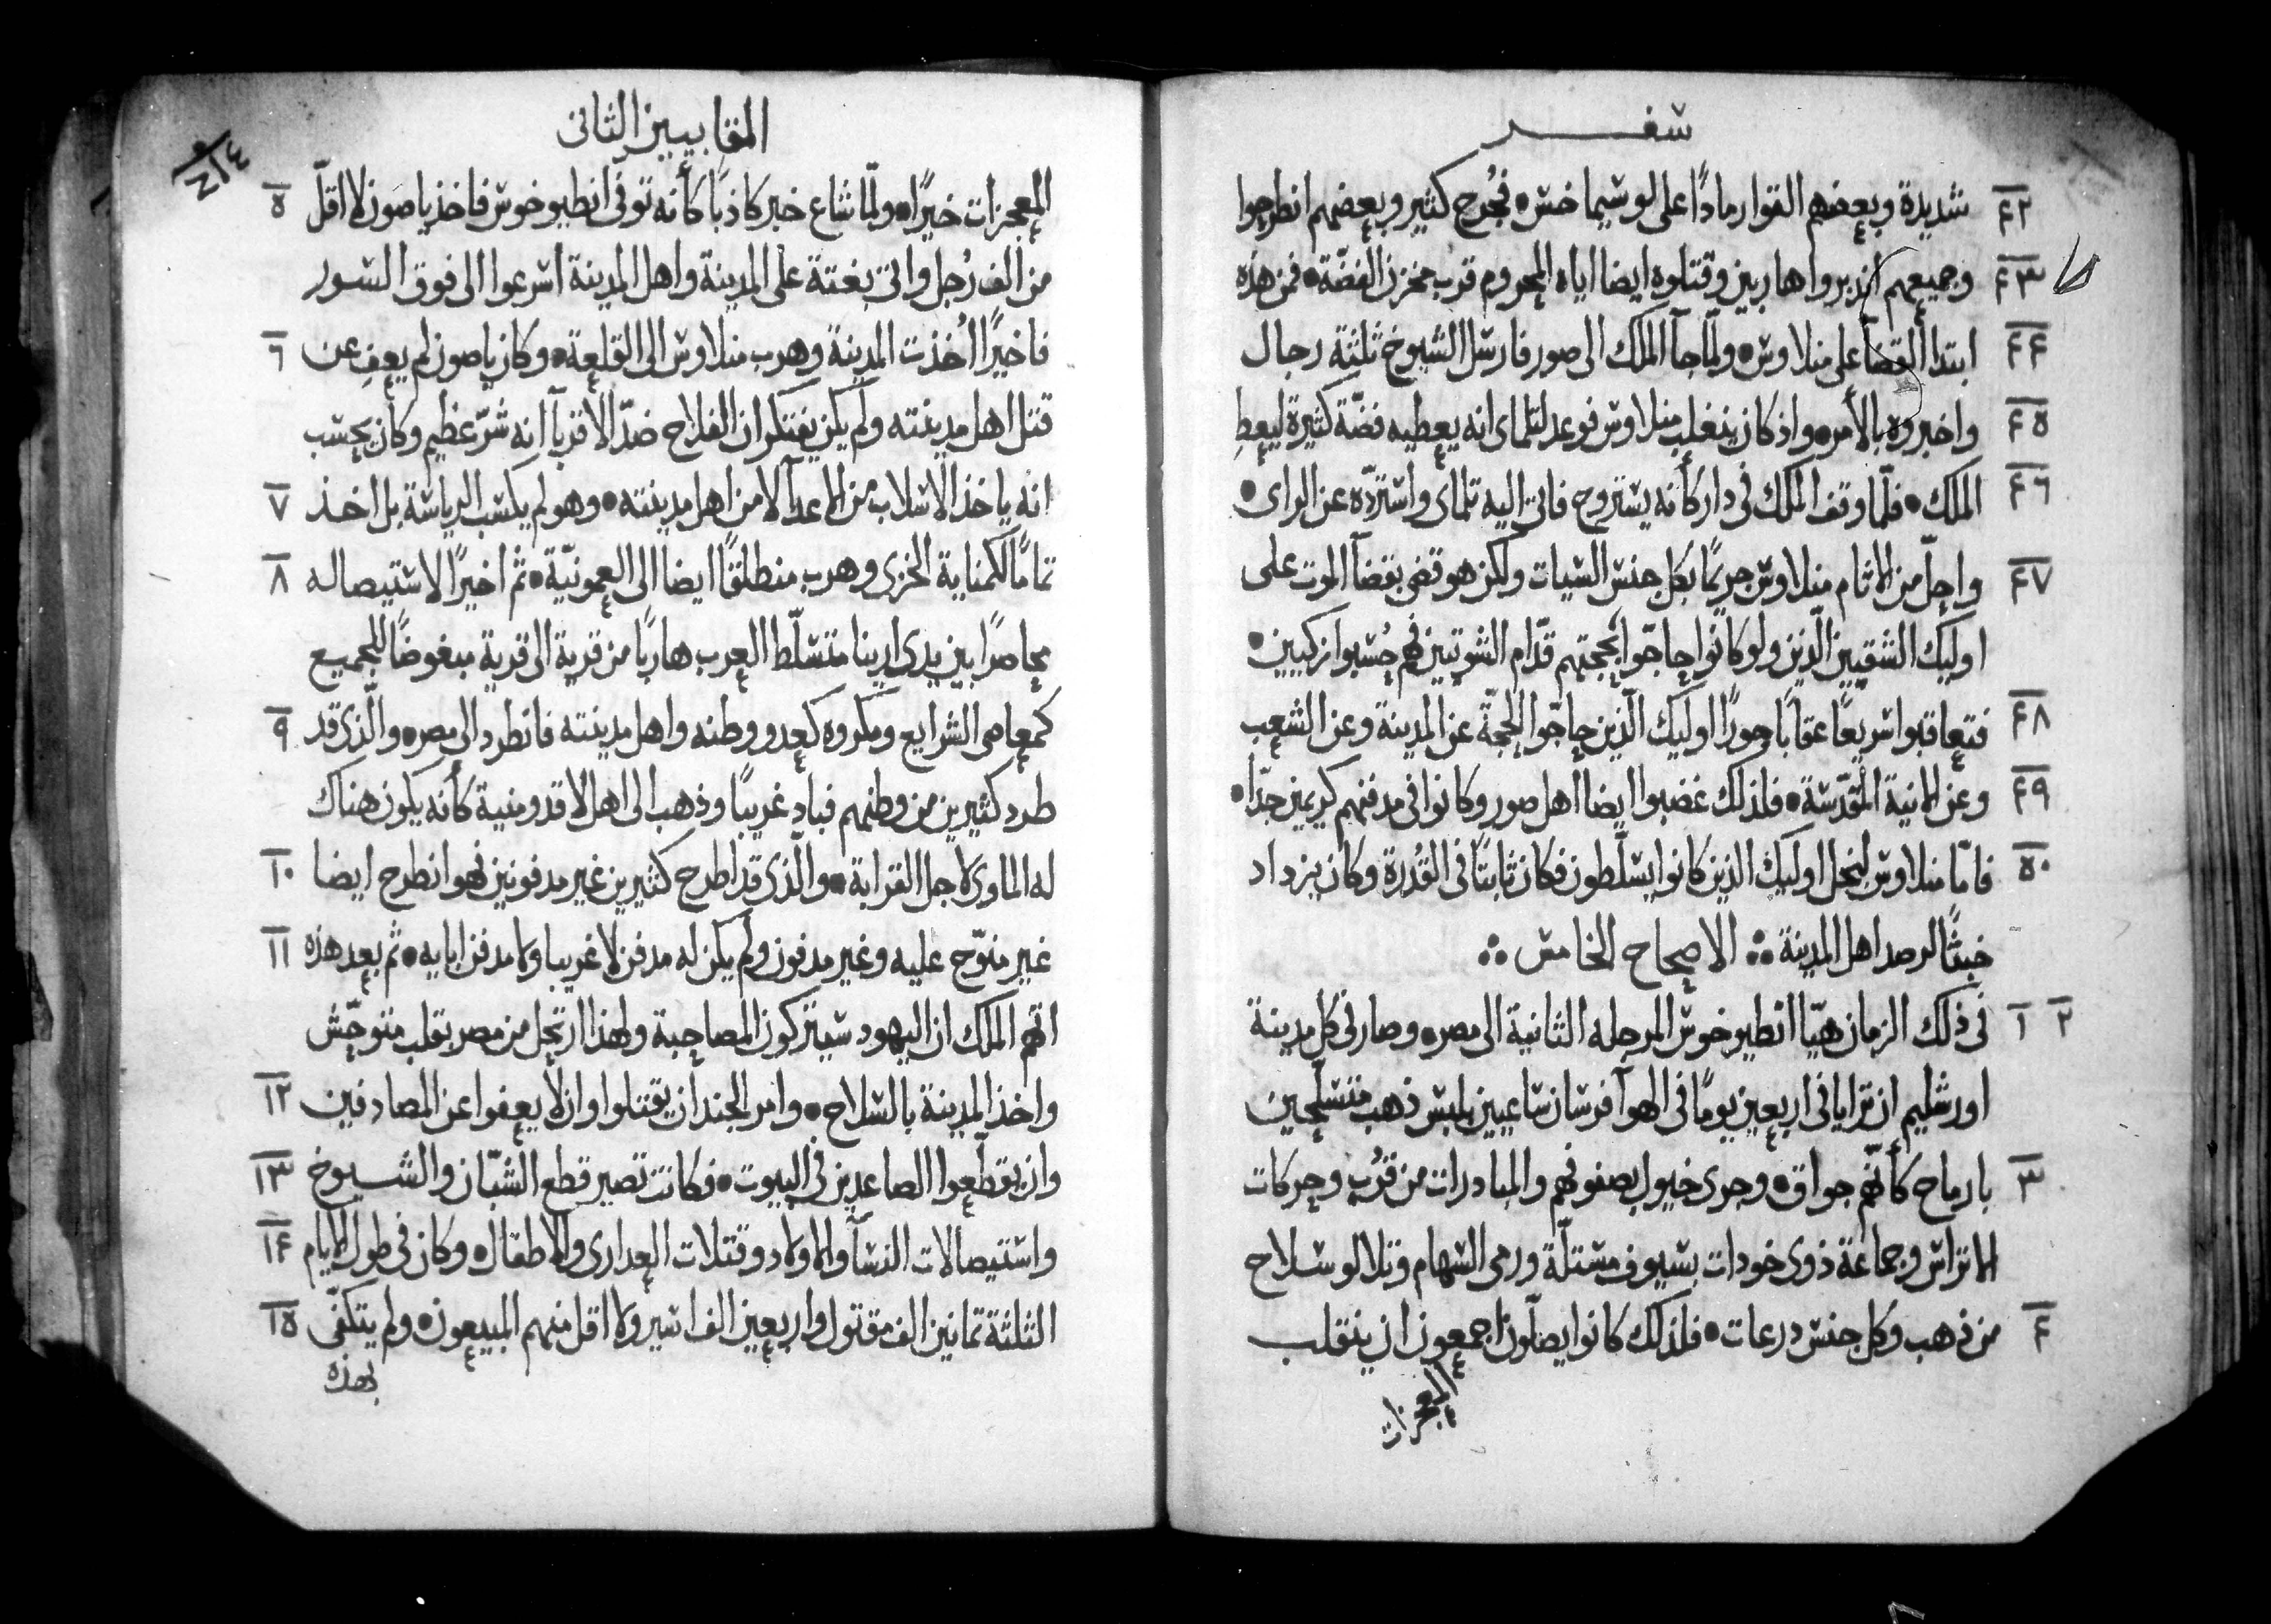 سفر
٤٢ شديدة وبعضهم القوا رمادًا على لوسيماخس • فجُرح كثير وبعضهم انطرحوا
٤٣ وجميعهم اندبروا هاربين وقتلوه ايضا اياه المحروم قرب مخزن الفضّة • فمن هذه
٤٤ ابتدا القضآ على منلاوس • ولمّا جآ الملك الى صور فارسل الشيوخ ثلثة رجال
٤٥ واخبروه بالأمر • واذ كان ينغلب منلاوس فوعد لتلماى انه يعطيه فضّة كثيرة ليعطِ
٤٦ الملك • فلمّا وقف الملك فى دار كأنه يستروح فاتى اليه تلماى واستردّه عن الراى •
٤٧ واحلّ من الاثام منلاوس جريمًا بكل جنس السيات ولكن هو قضى بقضآ الموت على
اوليك الشقيين الّذين ولو كانوا حاجّوا بحجتهم قدّام الشوتيين فهم حُسبوا زكيين •
٤٨ فتعاقبوا سريعًا عقابًا جورًا اوليك الّذين حاجّوا الحجة عن المدينة وعن الشعب
٤٩ وعن الانية المقدّسة • فلذلك غضبوا ايضا اهل صور وكانوا فى مدفنهم كريمين جدّا •
٥٠ فامّا منلاوس لبخل اوليك الذين كانوا يسلّطون فكان ثابتًا فى القُدرة وكان يزداد
خبثًا لرصد اهل المدينة ❖ الاصحاح الخامس ❖
٢ ١ فى ذلك الزمان هيّا انطيوخوس المرحله الثانية الى مصر • وصار فى كل مدينة
اورشليم ان ترايا فى اربعين يومًا فى الهوآ فرسان ساعيين بلبس ذهب متسلّحين
٣ بارماح كأنّهم جواق • وجرى خيول بصفوفهم والمبادرات من قُرب وحركات
الاتراس وجماعة ذوى خودات بسيوف مستلّة ورمى السهام وتلالو سلاح
٤ من ذهب وكل جنس درعات • فلذلك كانوا يصلّون اجمعون ان ينقلب
المعجزات
المقابيين الثانى
٥ المعجزات خيرًا • ولمّا شاع خبر كاذبًا كأنه توفى انطيوخوس فاخذ ياصون لا اقلّ
من الف رُجل واتى بغتة على المدينة واهل المدينة اسرعوا الى فوق السور
٦ فاخيرًا أُخذت المدينة وهرب منلاوس الى القلعة • وكان ياصون لم يعفِ عن
قتل اهل مدينته ولم يكن يفتكر ان الفلاح ضدّ الاقربآ انه شرّ عظيم وكان يحسب
٧ انه ياخذ الاسلاب من الاعدآ لا من اهل مدينته • وهو لم يكسب الرياسة بل اخذ
٨ تمامًا لكمناية الخزى وهرب منطلقًا ايضا الى العمونيّة • ثم اخيرًا لاستيصاله
محاصرًا بين يدى اريتا متسلّط العرب هاربًا من قرية الى قرية مبغوضًا للجميع
٩ كمعاصى الشرايع ومكروه كعدو وطنه واهل مدينته فانطرد الى مصر • والّذى قد
طرد كثيرين من وطنهم فباد غريبًا وذهب الى اهل لاقدومنية كأنه يكون هناك
١٠ له الماوى لاجل القرابة • والّذى قد اطرح كثيرين غير مدفونين فهو انطرح ايضا
١١ غير منوّح عليه وغير مدفون ولم يكن له مدفن لا غريبا ولا مدفن ابايه • ثم بعد هذه
اتهم الملك ان اليهود سيتركون المصاحبة ولهذا ارتحل من مصر بقلب متوحّش
١٢ واخذ المدينة بالسلاح • وامر الجند ان يقتلوا وان لا يعفوا عن المصادفين
١٣ وان يقطّعوا الصاعدين فى البيوت • فكانت تصير قطع الشبّان والشيوخ
١٤ واستيصالات النسآ والاولاد وقتلات العدارى والاطفال • وكان فى طول الايام
١٥ الثلثة تمانين الف مقتول واربعين الف اسير ولا اقل منهم المبيعون • ولم يتكفّى
بهذه